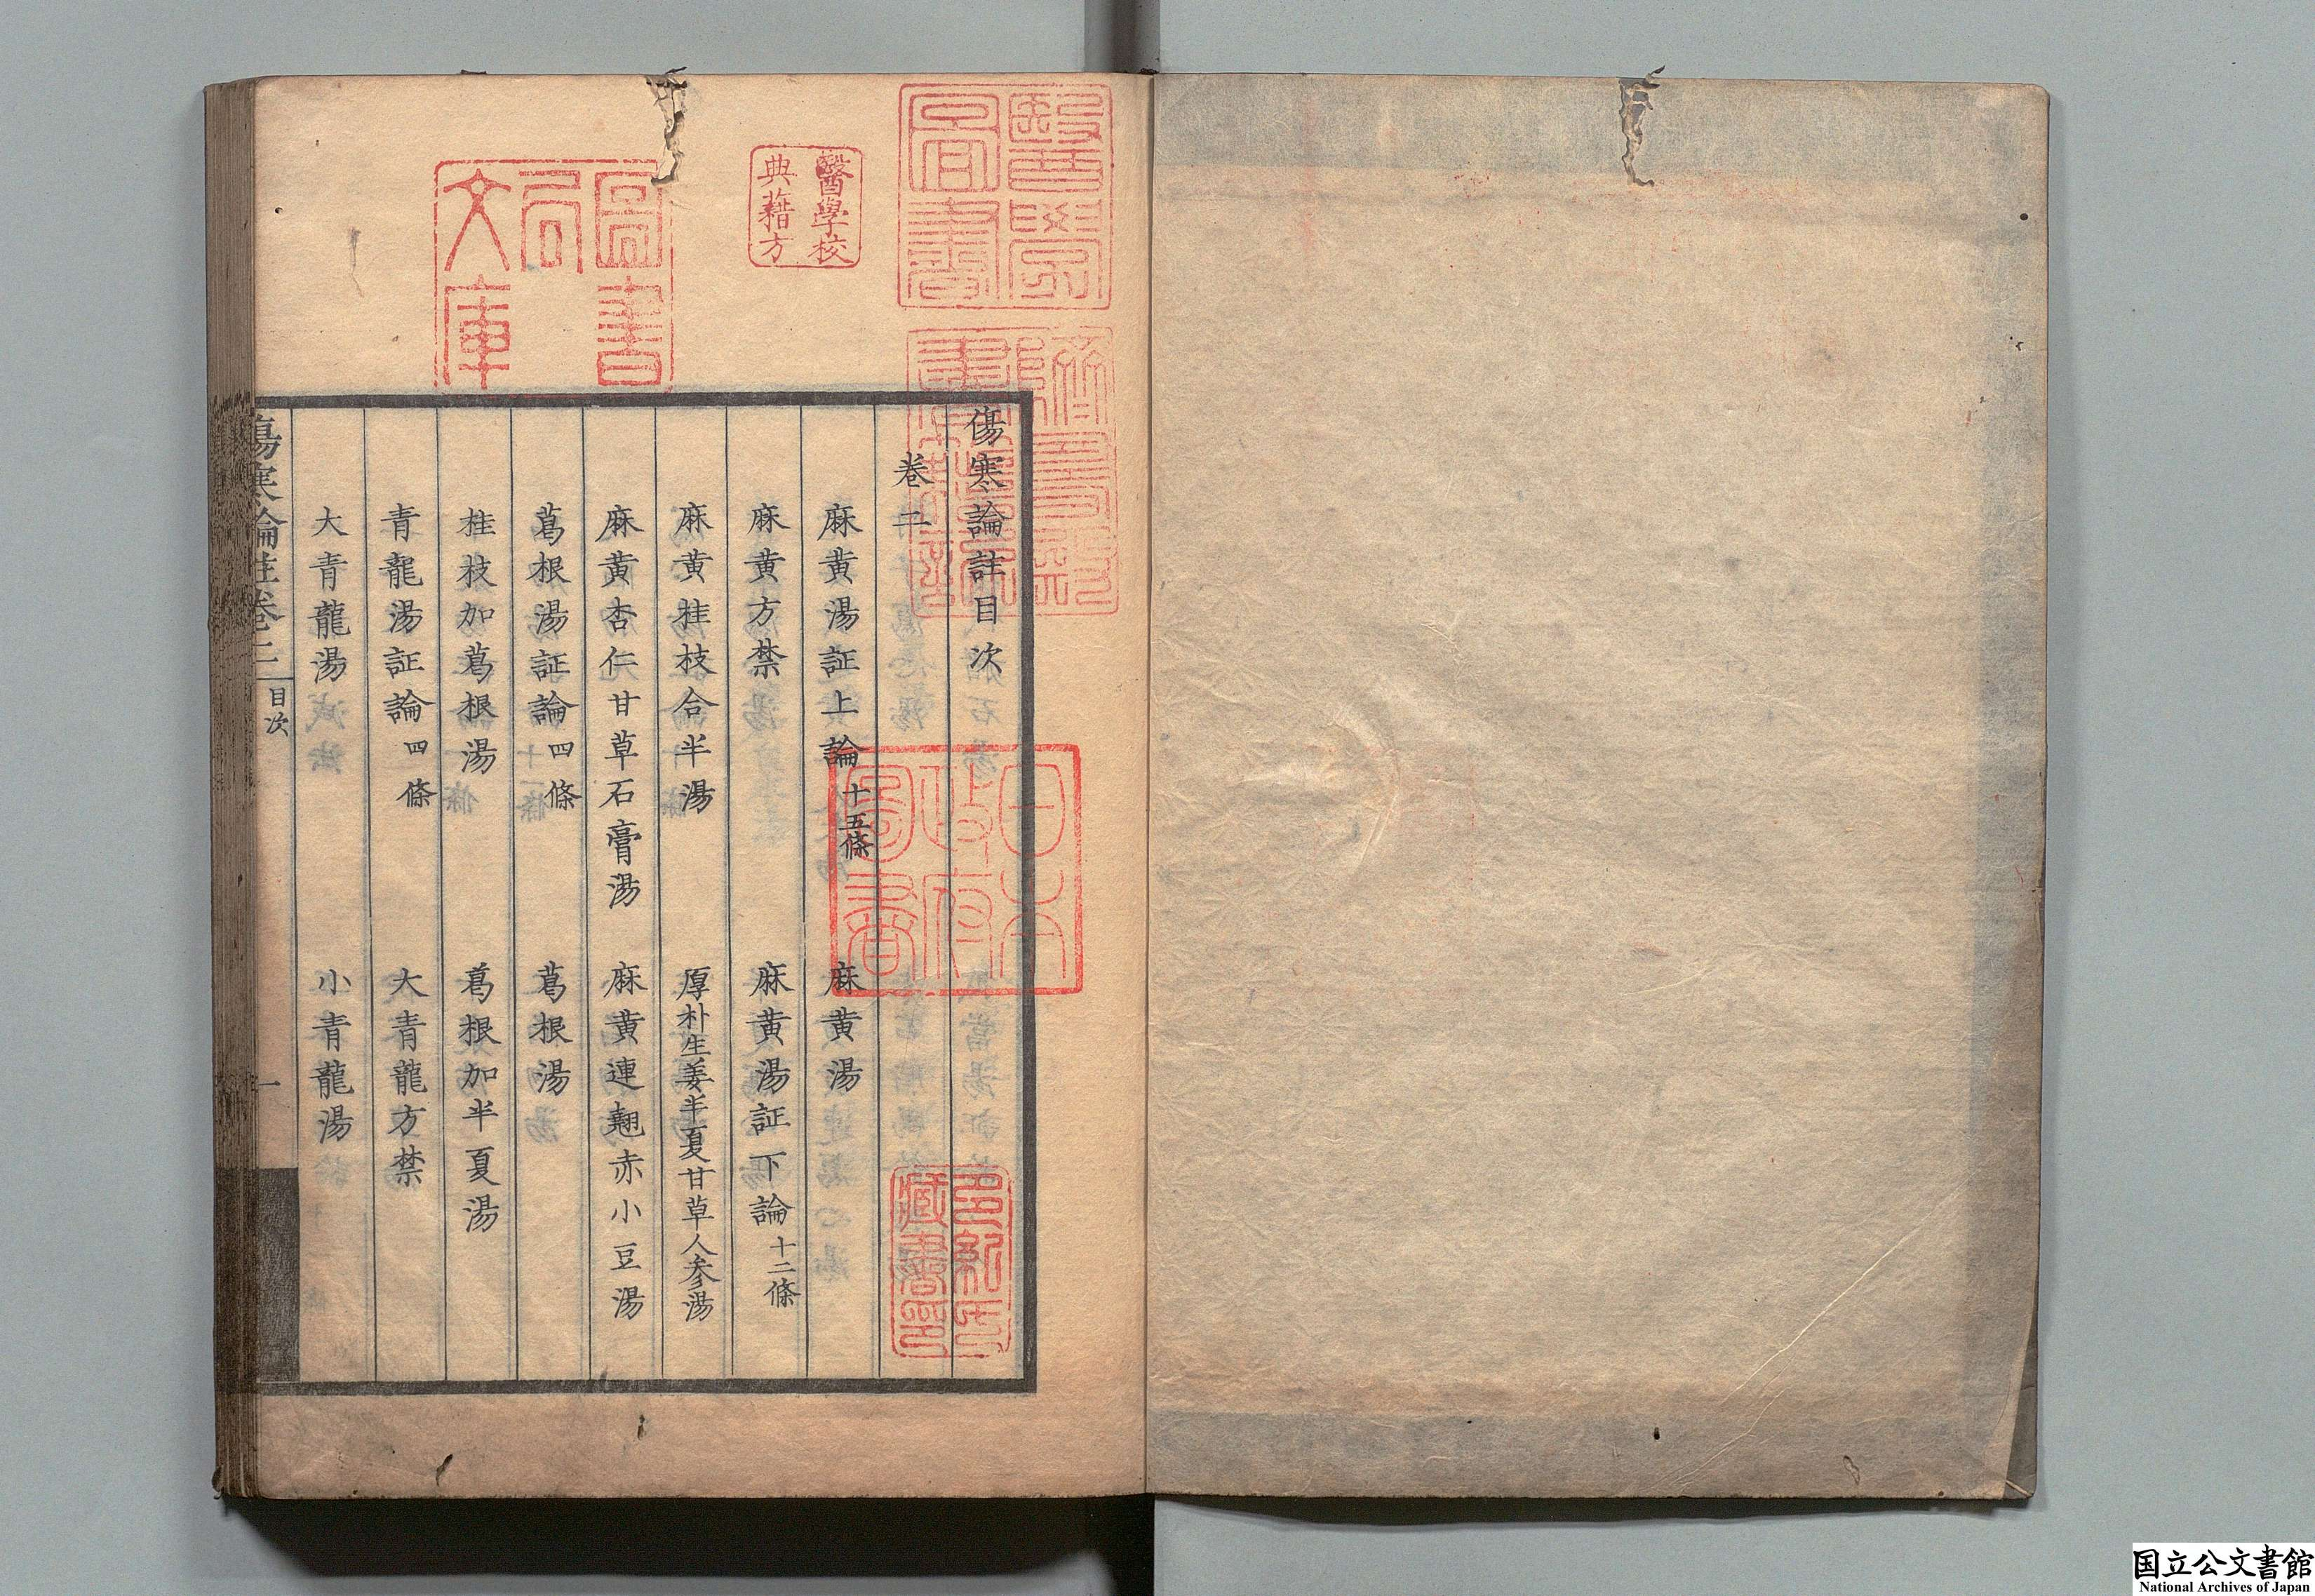 傷寒論註目次
卷二
麻黄湯証上論 十五條 麻黄湯
麻黄方禁 麻黄湯証下論 十二條
麻黄桂枝合半湯 厚朴生姜半夏甘草人参湯
麻黄杏仁甘草石膏湯 麻黄連翹赤小豆湯
葛根湯証論 四條 葛根湯
桂枝加葛根湯 葛根加半夏湯
青龍湯証論 四條 大青龍方禁
大青龍湯 小青龍湯
傷寒論註卷二 目次 一
醫學圖書
醫學校
典藉方
圖書
局
文庫
躋壽殿書籍記
日本
政府
圖書
多紀氏
藏書印
国立公文書館
National Archives of Japan